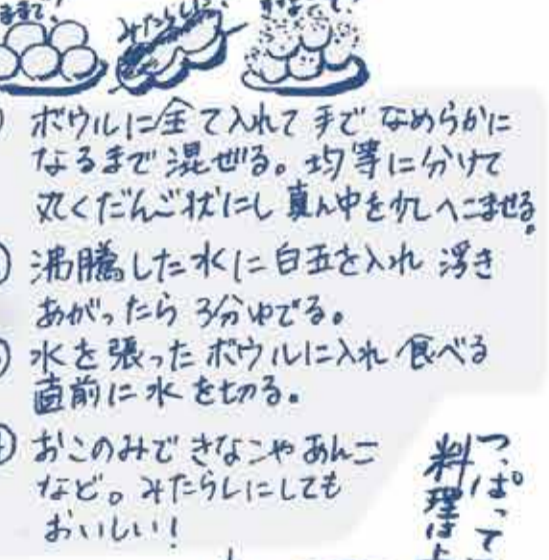 みたらしに!
ボウルに全て入れて手でなめらかに
なるまで混ぜる。均等に分けて
丸くだんご状にし真ん中を少しへこませる。
沸騰した水に白玉を入れ浮き
あがったら3分ゆでる。
水を張ったボウルに入れ食べる
直前に水を切る。
おこのみできなこやあんこ
など。みたらしにしても
おいしい!
つ、ぱって
料理は